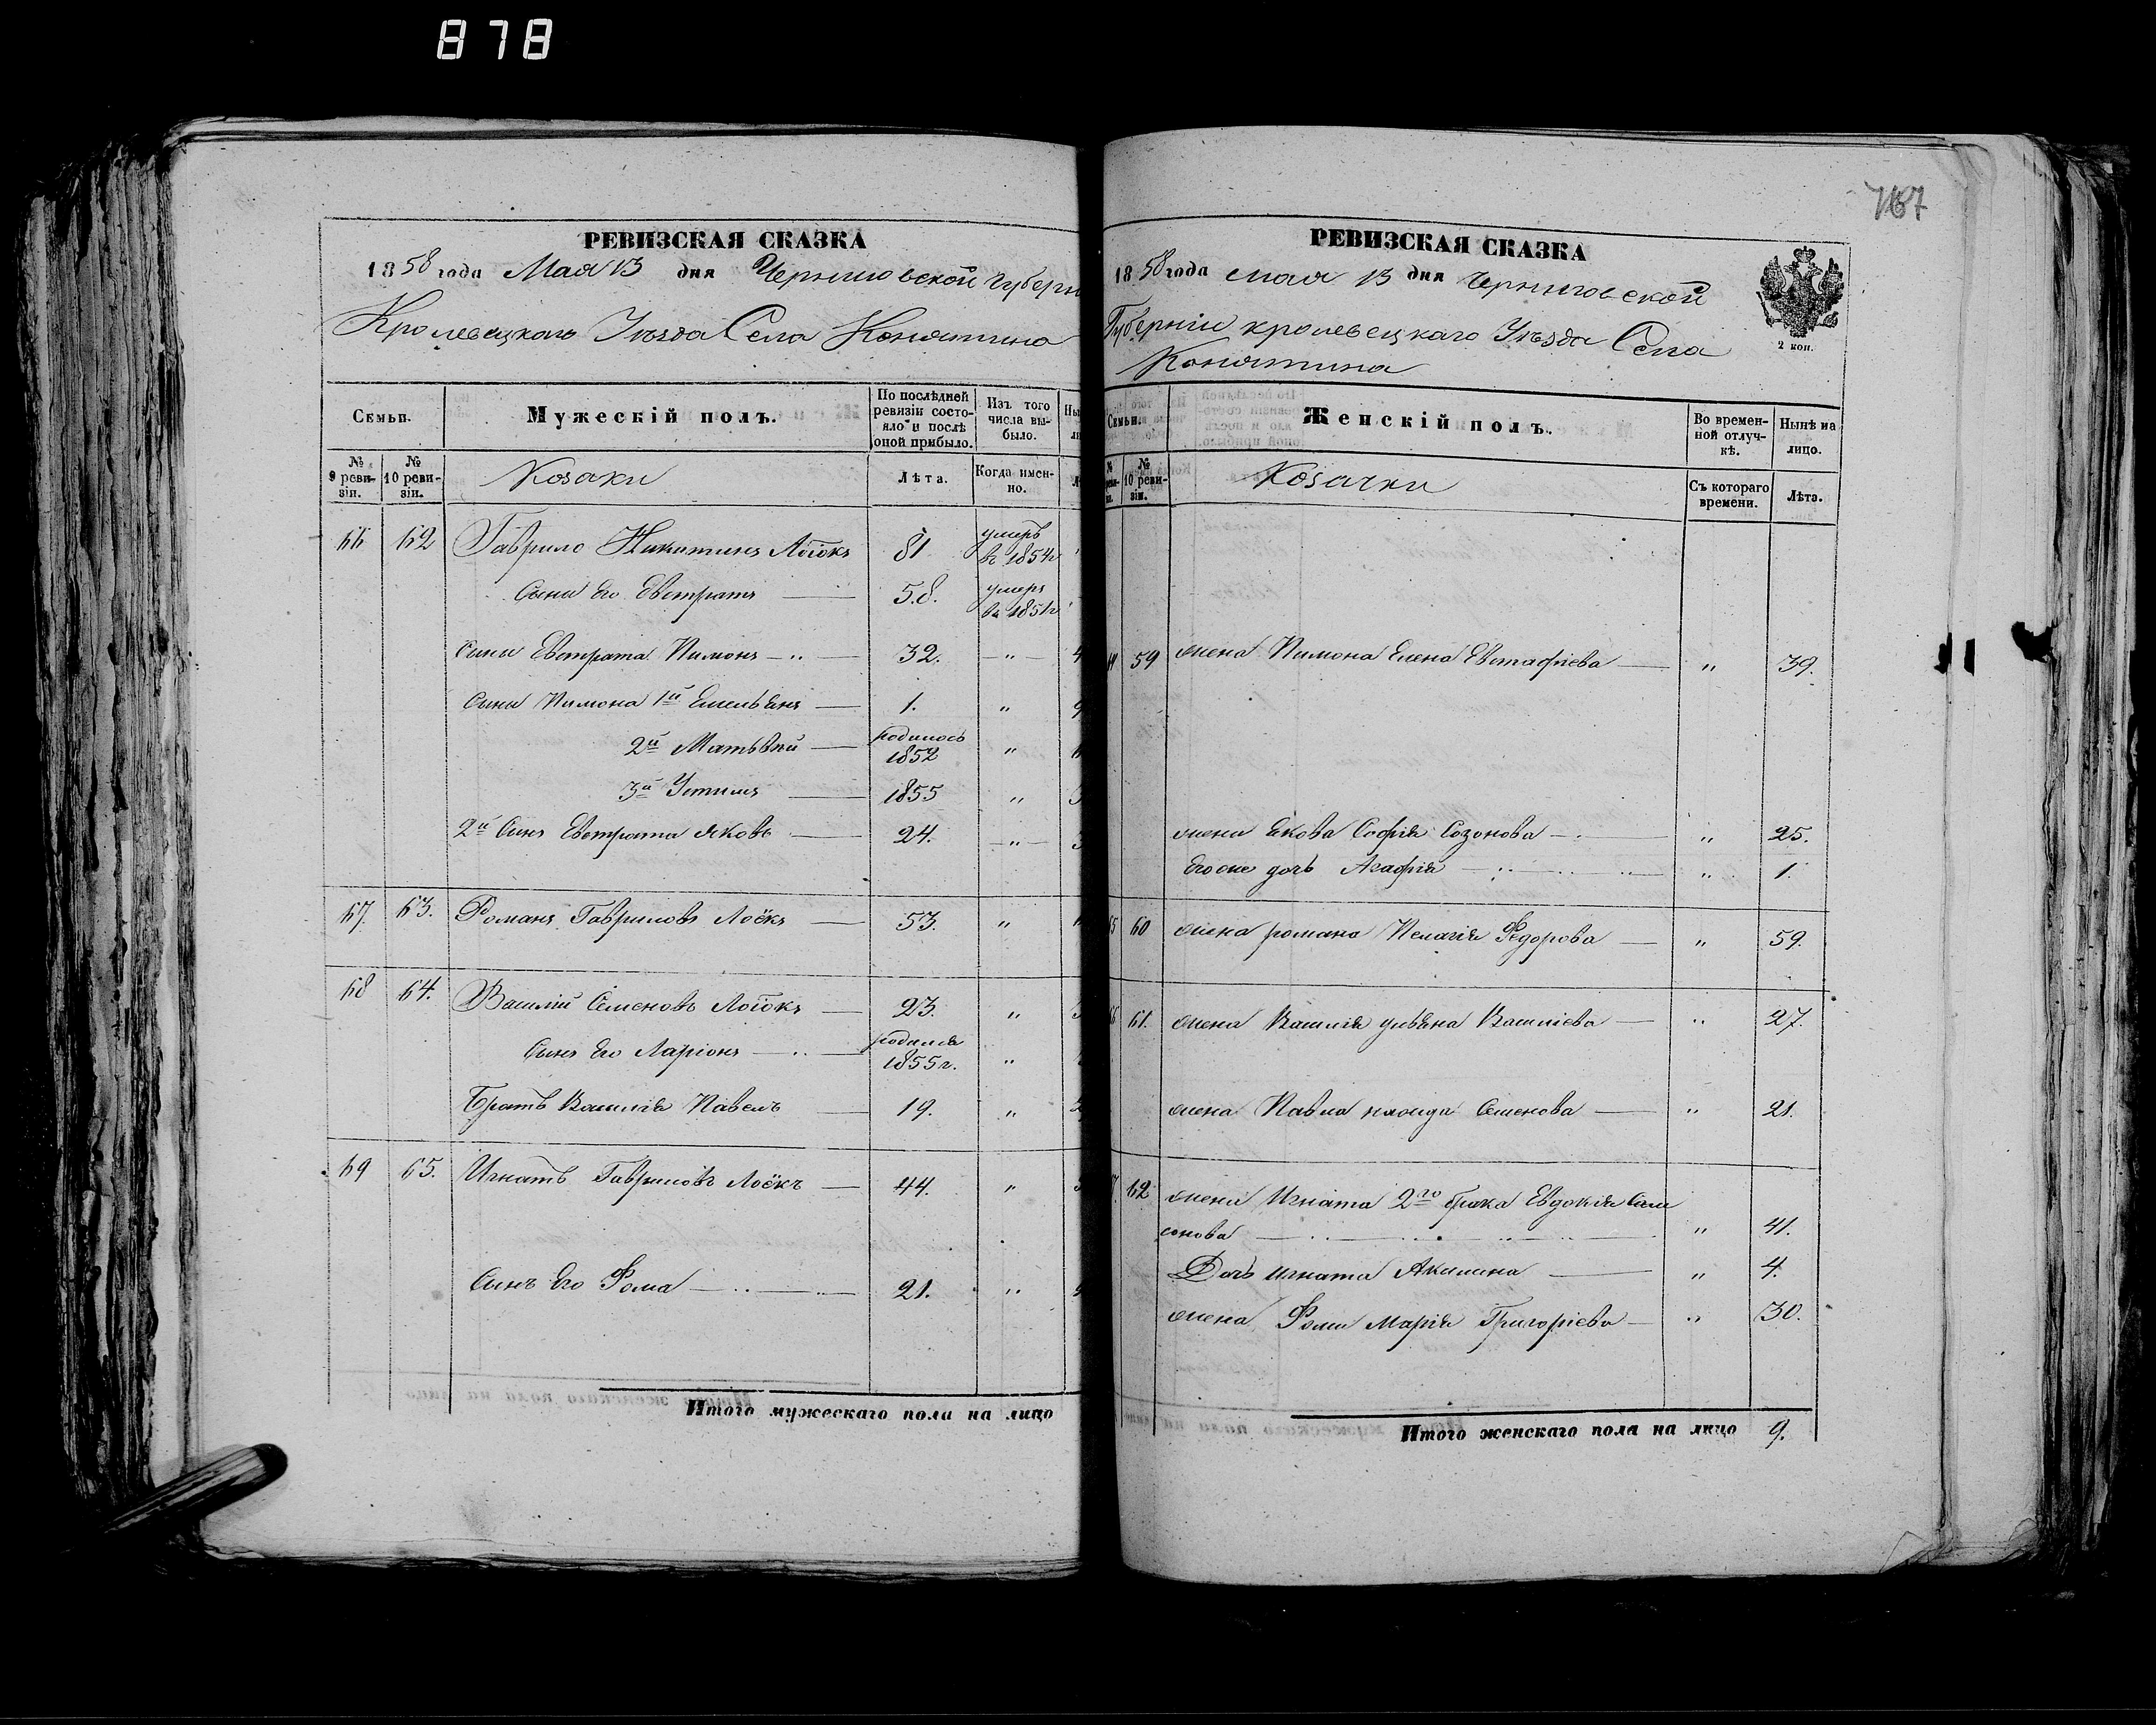 878
РЕВИЗСКАЯ СКАЗКА
1858 года Мая 13 дня Черниговской Губерн
Кролевецкаго Уѣзда Села Конятина
Семьи.
Мужескій полъ.
По послѣдней ревизіи состояло и послѣ оной прибыло.
Изъ того числа выбыло.
№ 9 ревизіи.
№ 10 ревизіи.
Козаки
Лѣта.
Когда именно.
66 62 Гаврило Никитинъ Лоіокъ 81 умеръ въ 1854г
Сынъ Его Евстратъ 58. умеръ въ 1851г
Сынъ Евстрата Пимонъ 32. "
Сыны Пимона 1й Емельянъ 1. "
2й Матьвѣй родилось 1852 "
3й Устимъ 1855 "
2й Сынъ Евстрата Яковъ 24. "
67. 63. Романъ Гавриловъ Лоёкъ 53. "
68 64. Василій Семеновъ Лоіокъ 23. "
Сынъ Его Ларіонъ родился 1855г. "
Братъ Василія Павелъ 19. "
69 65. Игнатъ Гавриловъ Лоёкъ 44. "
Сынъ Его Фома 21. "
Итого мужескаго пола на лицо
767
РЕВИЗСКАЯ СКАЗКА
1858 года мая 13 дня Черниговской
Губерніи кролевецкаго Уѣзда Села
Конятина
2 коп.
Семьи.
Женскій полъ.
Во временной отлучкѣ.
Нынѣ на лицо.
№ 10 ревизіи.
Козачки
Съ котораго времени.
Лѣта.
59 жена Пимона Елена Евстафіева " 39.
жена Якова Софія Созонова " 25.
Егоже дочь Агафія " 1.
60 жена романа Пелагія Федорова " 59.
61. жена Василія ульяна Василіева " 27.
жена Павла Семенова " 21.
62 жена Игната 2го брака Евдокія Сам
сонова " 41.
Дочь игната Акилина " 4.
жена Фомы Марія Григоріева " 30.
Итого женскаго пола на лицо 9.